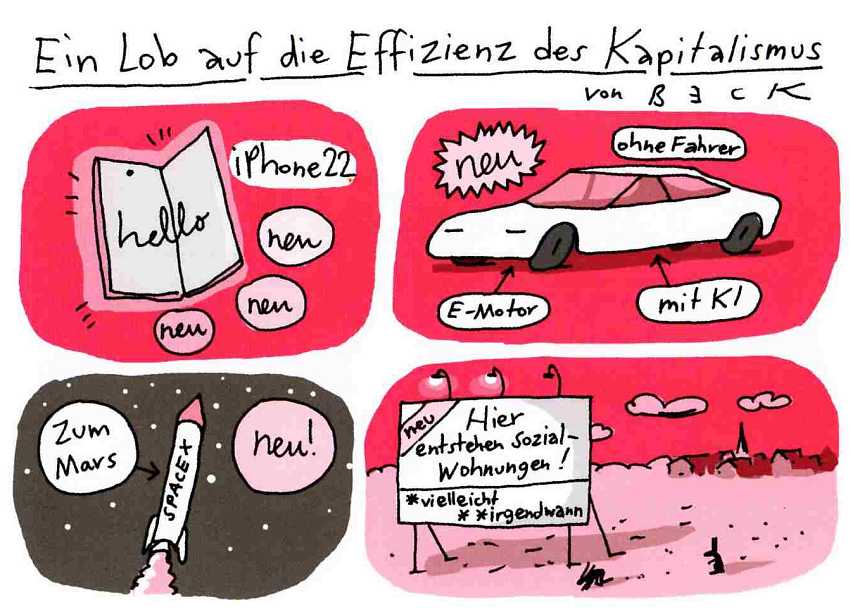 Ein Lob auf die Effizienz des Kapitalismus
von BECK
iPhone 22
hello
neu
neu
neu
neu
ohne Fahrer
E-Motor
mit KI
Zum
Mars
SPACEX
neu!
neu
Hier
entstehen Sozial-
Wohnungen!
*vielleicht
**irgendwann